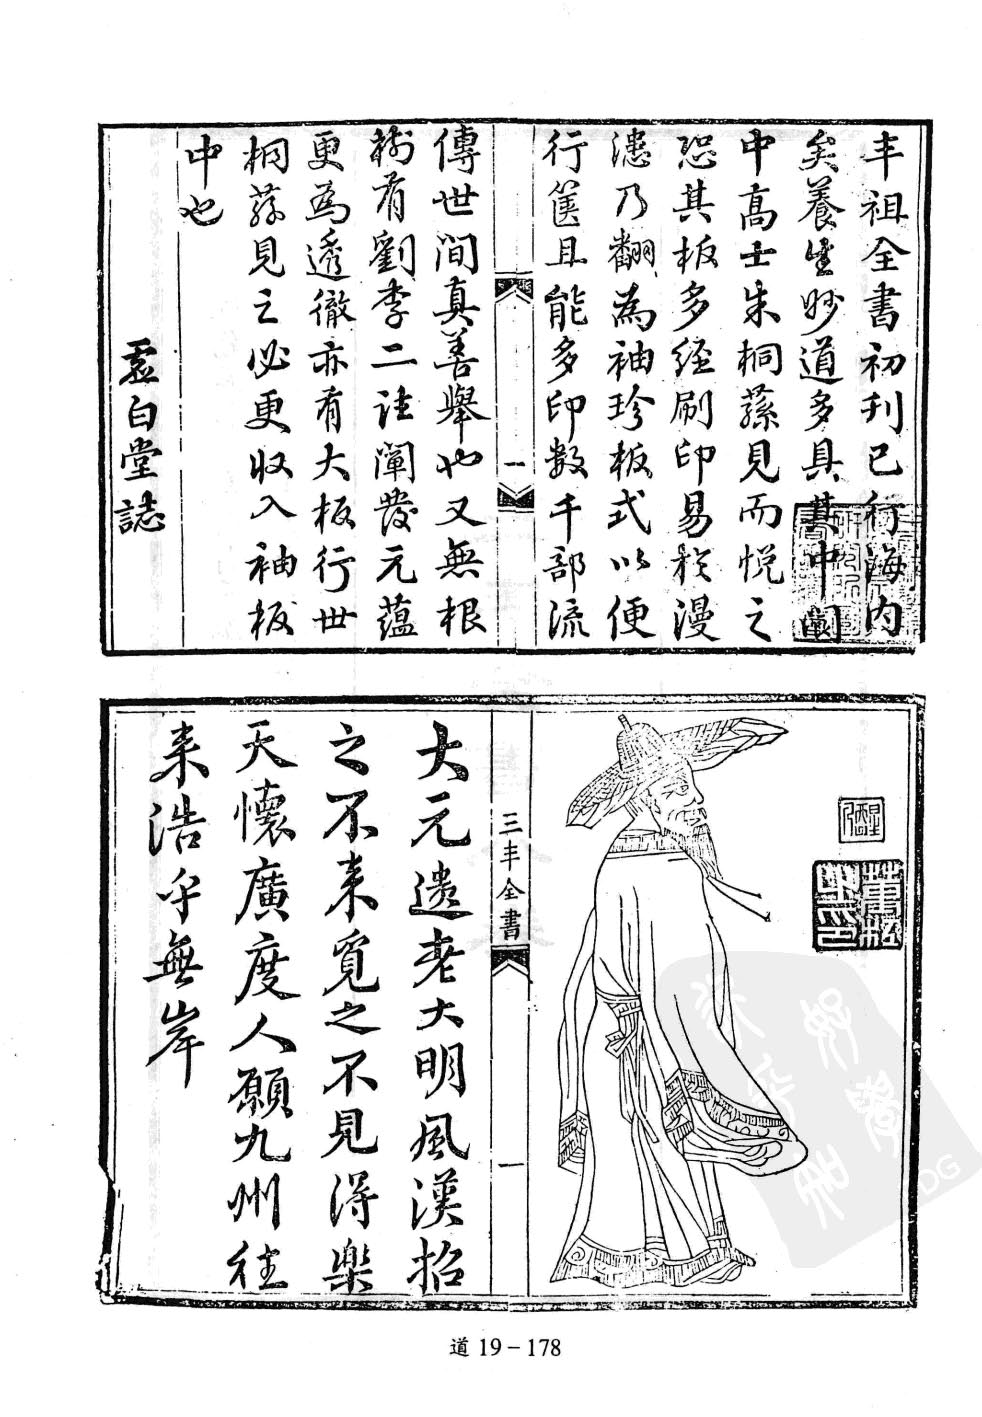 丰祖全書初刊已行海内
矣養生妙道多具其中閩
中髙士朱桐蓀見而悦之
恐其板多經刷印易於漫
漶乃翻為袖珍板式以便
行篋且能多印數千部流
一
傳世间真善舉也又無根
樹有劉李二註闡發元蘊
更為透徹亦有大板行世
桐蓀見之必更收入袖板
中也
虚白堂誌
三丰全書
一
大元遺老大明風漢招
之不来覓之不見得樂
天懷廣度人願九州往
来浩乎無岸
道 19－178